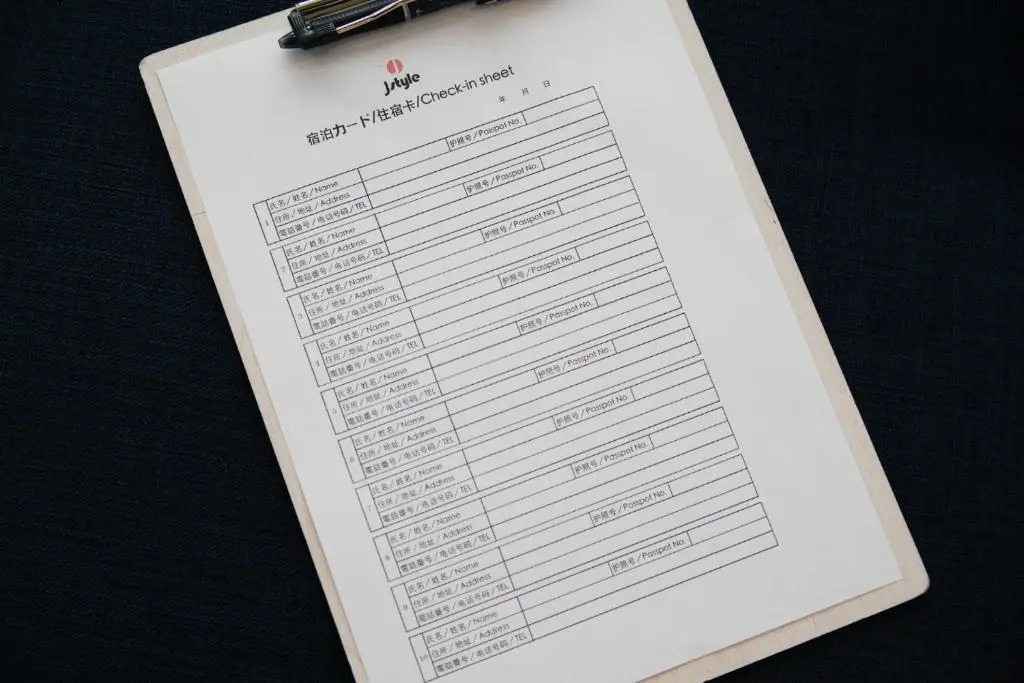 Jstyle
宿泊カード/住宿卡/Check-in sheet
年 月 日
1
氏名/姓名/Name 护照号/Passpot No.
住所/地址/Address
電話番号/电话号码/TEL
2
氏名/姓名/Name 护照号/Passpot No.
住所/地址/Address
電話番号/电话号码/TEL
3
氏名/姓名/Name 护照号/Passpot No.
住所/地址/Address
電話番号/电话号码/TEL
4
氏名/姓名/Name 护照号/Passpot No.
住所/地址/Address
電話番号/电话号码/TEL
5
氏名/姓名/Name 护照号/Passpot No.
住所/地址/Address
電話番号/电话号码/TEL
6
氏名/姓名/Name 护照号/Passpot No.
住所/地址/Address
電話番号/电话号码/TEL
7
氏名/姓名/Name 护照号/Passpot No.
住所/地址/Address
電話番号/电话号码/TEL
8
氏名/姓名/Name 护照号/Passpot No.
住所/地址/Address
電話番号/电话号码/TEL
9
氏名/姓名/Name 护照号/Passpot No.
住所/地址/Address
電話番号/电话号码/TEL
10
氏名/姓名/Name 护照号/Passpot No.
住所/地址/Address
電話番号/电话号码/TEL